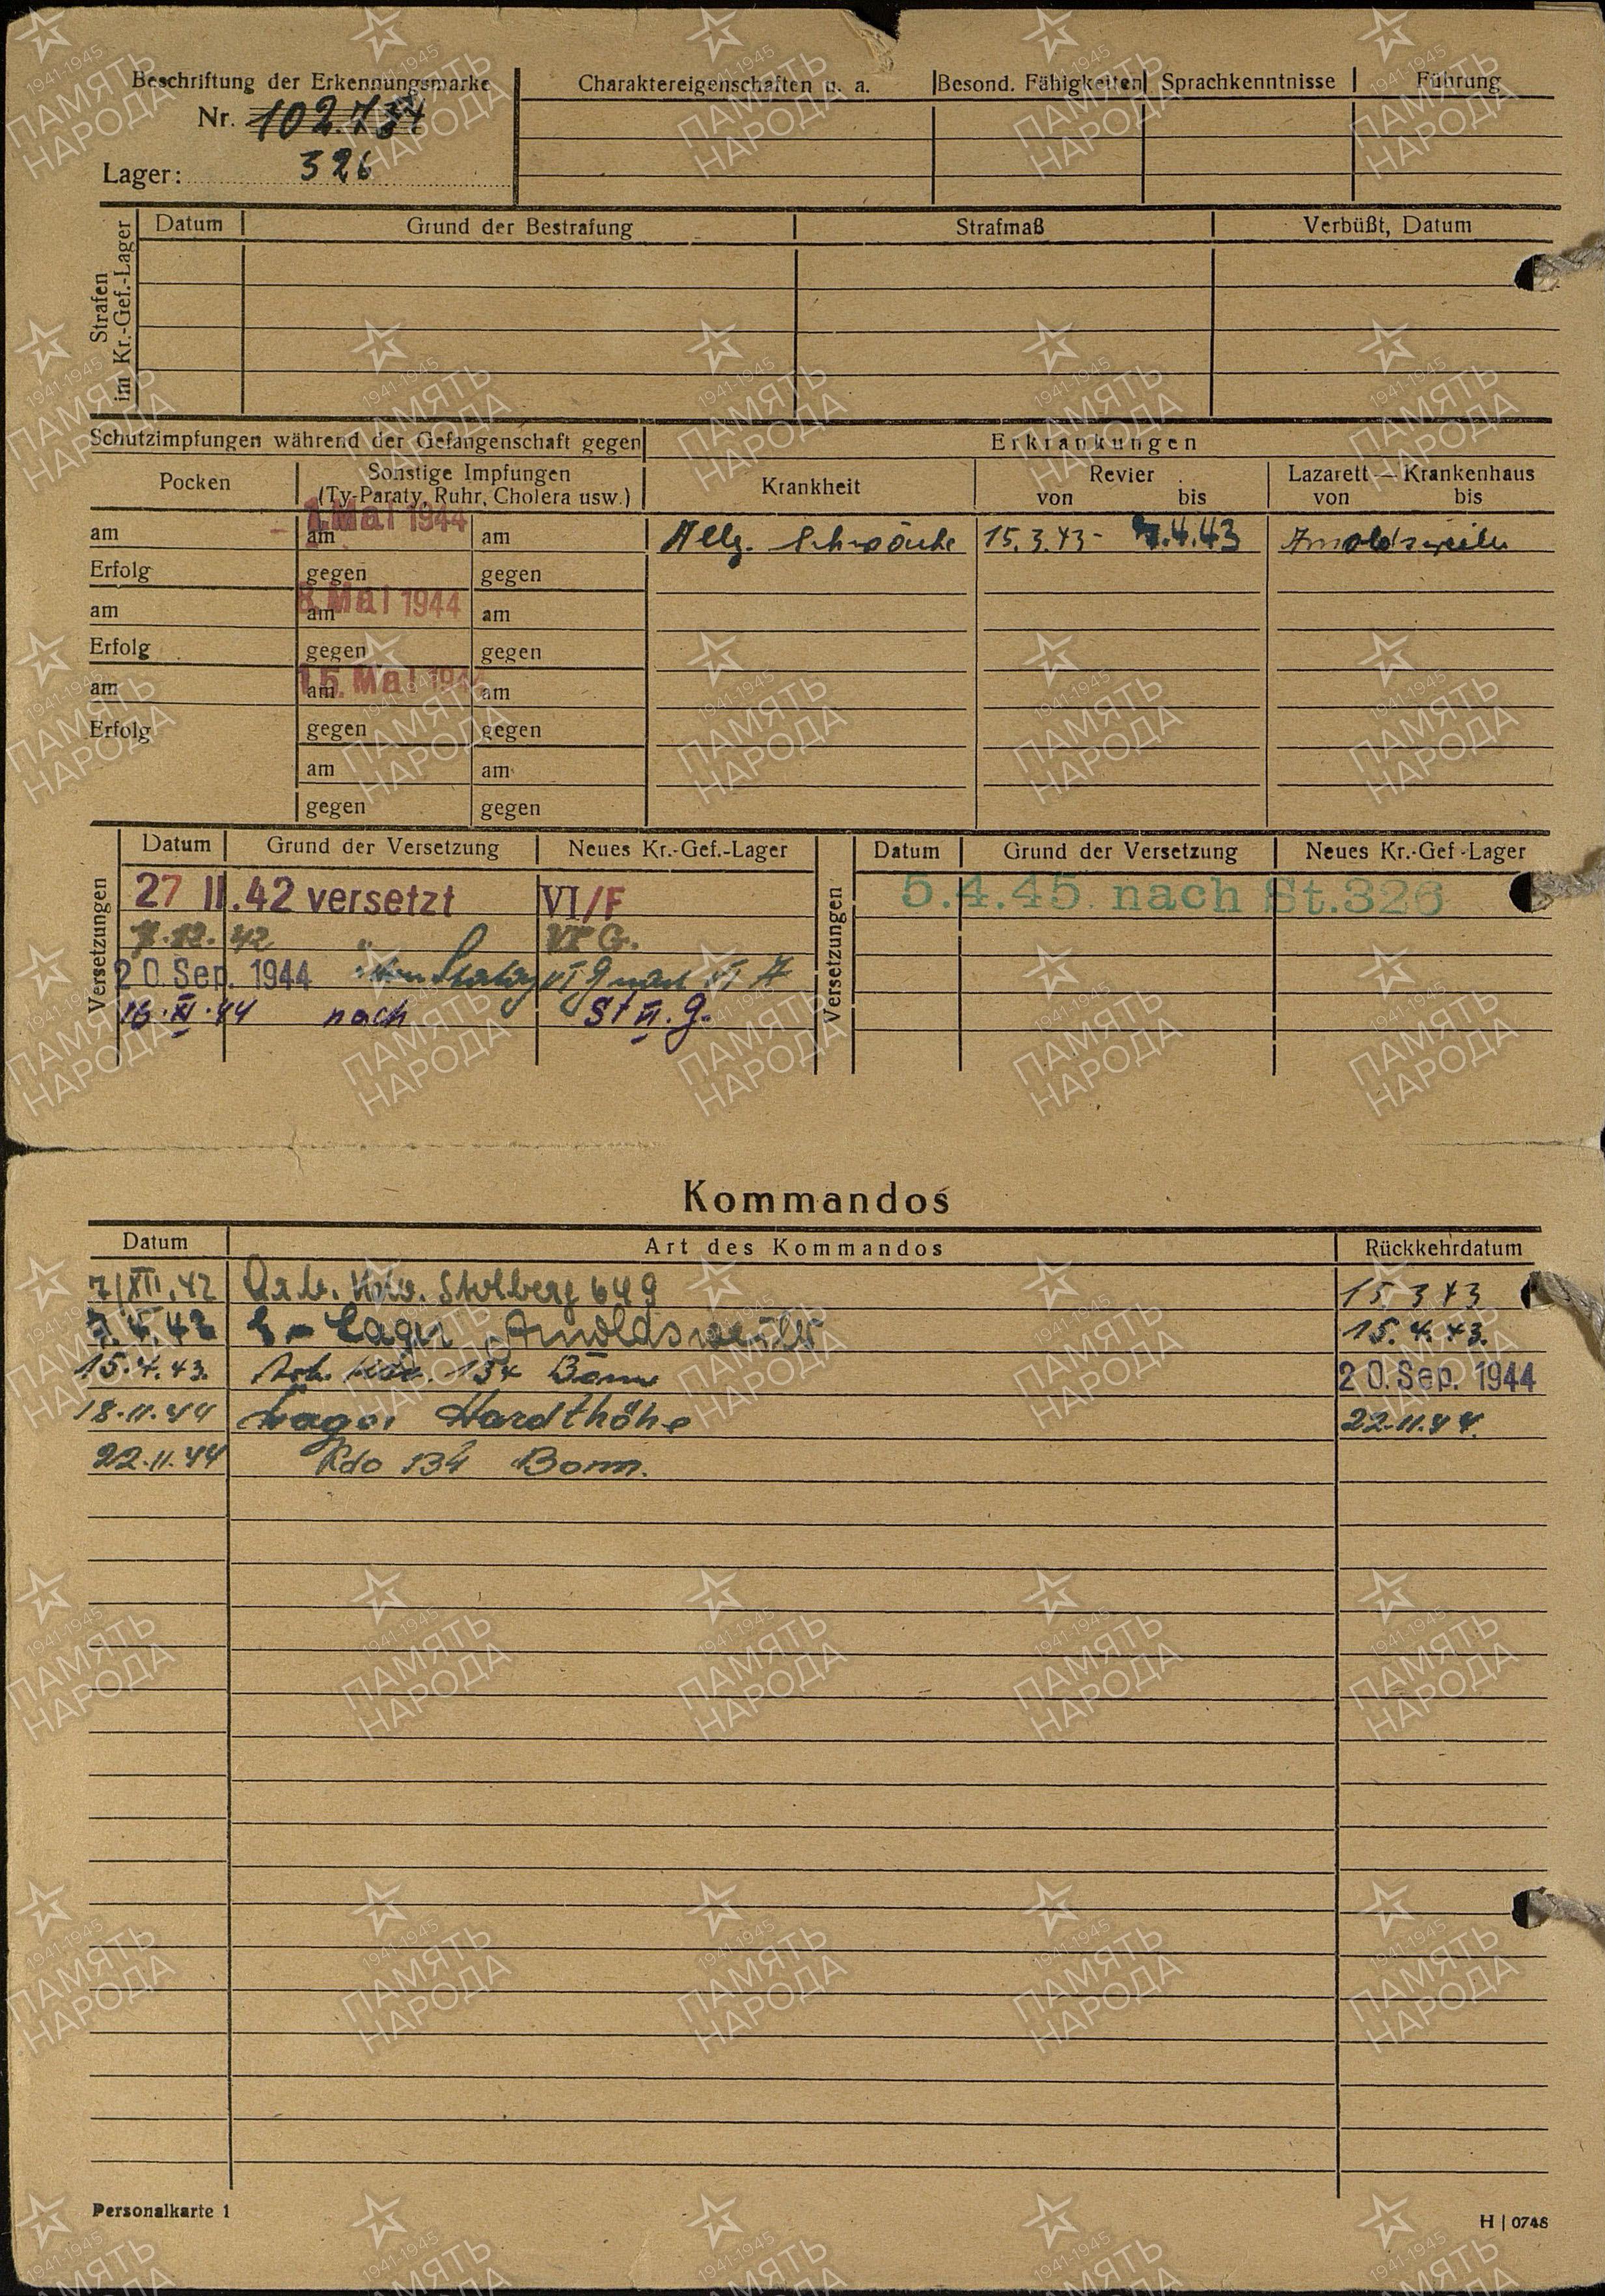 Beschriftung der Erkennungsmarke
Nr. 102.754
Lager: 326
Charaktereigenschaften u. a. Besond. Fähigkeiten Sprachkenntnisse Führung
Strafen
im Kr.-Gef.-Lager
Datum Grund der Bestrafung Strafmaß Verbüßt, Datum
Schutzimpfungen während der Gefangenschaft gegen
Erkrankungen
Pocken
Sonstige Impfungen
(Ty-Paraty, Ruhr, Cholera usw.)
Krankheit
Revier
von bis
Lazarett — Krankenhaus
von bis
- 1. Mai 1944
am am am
Allg. Schwäche 15.3.43 - 7.4.43 Arnoldsweiler
Erfolg gegen gegen
8. Mai 1944
am am am
Erfolg gegen gegen
15. Mai 1944
am am am
Erfolg gegen gegen
am am
gegen gegen
Versetzungen
Datum Grund der Versetzung Neues Kr.-Gef.-Lager
27 11.42 versetzt VI/F
7.12.42 " VI G.
20. Sep. 1944 von Stalag VI G nach VI
16.XI.44 nach St VI. G.
Versetzungen
Datum Grund der Versetzung Neues Kr.-Gef-Lager
5.4.45. nach St.326
Kommandos
Datum Art des Kommandos Rückkehrdatum
7/XII.42 Arb. Kdo. Stolberg 649 15.3.43
7.4.43 E-Lager Arnoldsweiler 15.4.43.
15.4.43. Arb. Kdo. 134 Bonn 20. Sep. 1944
18.11.44 Lager Hardthöhe 22.11.44.
22.11.44 Kdo 134 Bonn.
Personalkarte 1
H | 0748
1941-1945
ПАМЯТЬ
НАРОДА